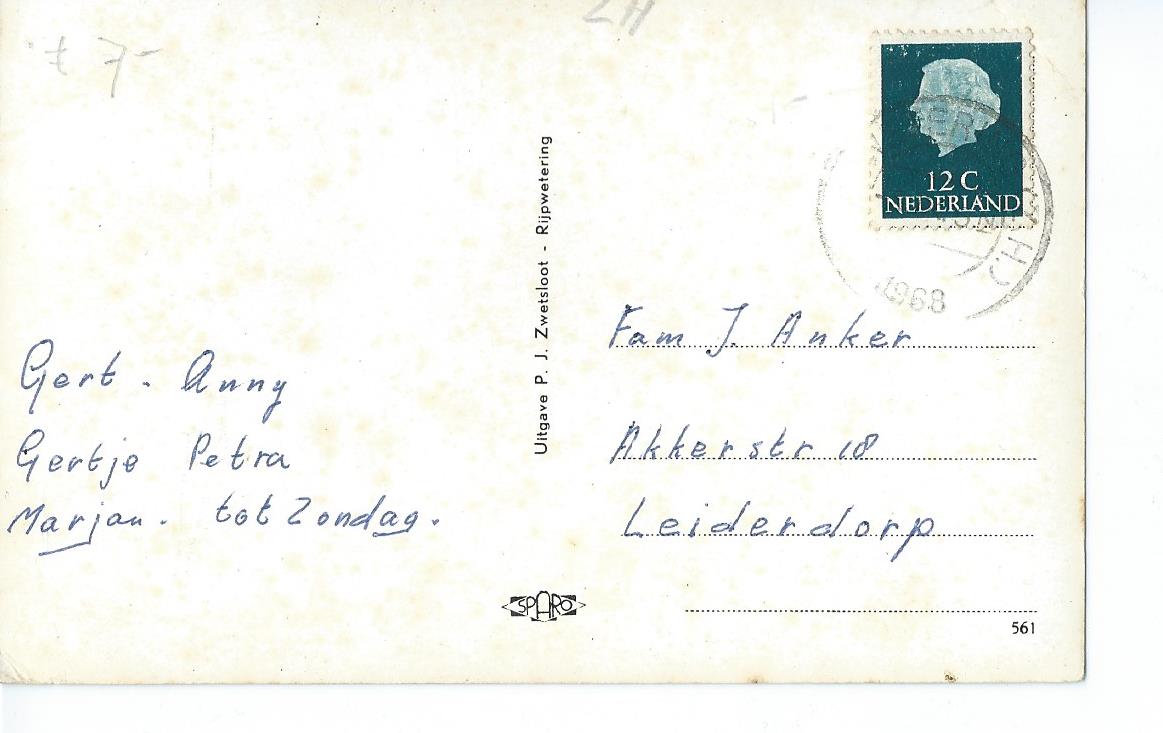 ZH
f 7-
12 C
NEDERLAND
1968
Gert - Anny
Gertje Petra
Marjan. tot Zondag.
Uitgave P. J. Zwetsloot - Rijpwetering
Fam J. Anker
Akkerstr 18
Leiderdorp
SPARO
561